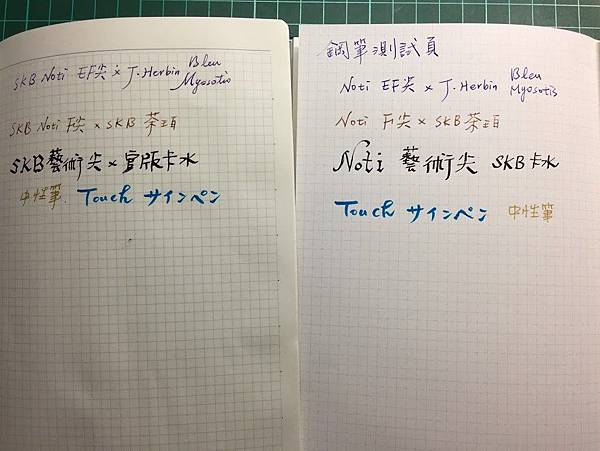 SKB Noti EF尖 × J. Herbin Bleu Myosotis
SKB Noti F尖 × SKB 茶項
SKB藝術尖 × 官版卡水
中性筆. Touch サインペン
鋼筆測試頁
Noti EF尖 × J. Herbin Bleu Myosotis
Noti F尖 × SKB 茶項
Noti 藝術尖 SKB卡水
Touch サインペン 中性筆